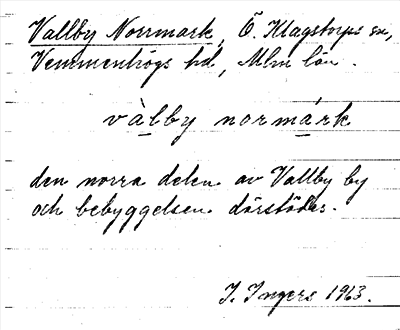 Vallby Norrmark, Ö. Klagstorps sn,
Vemmenhögs hd, Mlm län.
vàlby normárk
den norra delen av Vallby by
och bebyggelsen därstädes.
I. Ingers 1963.